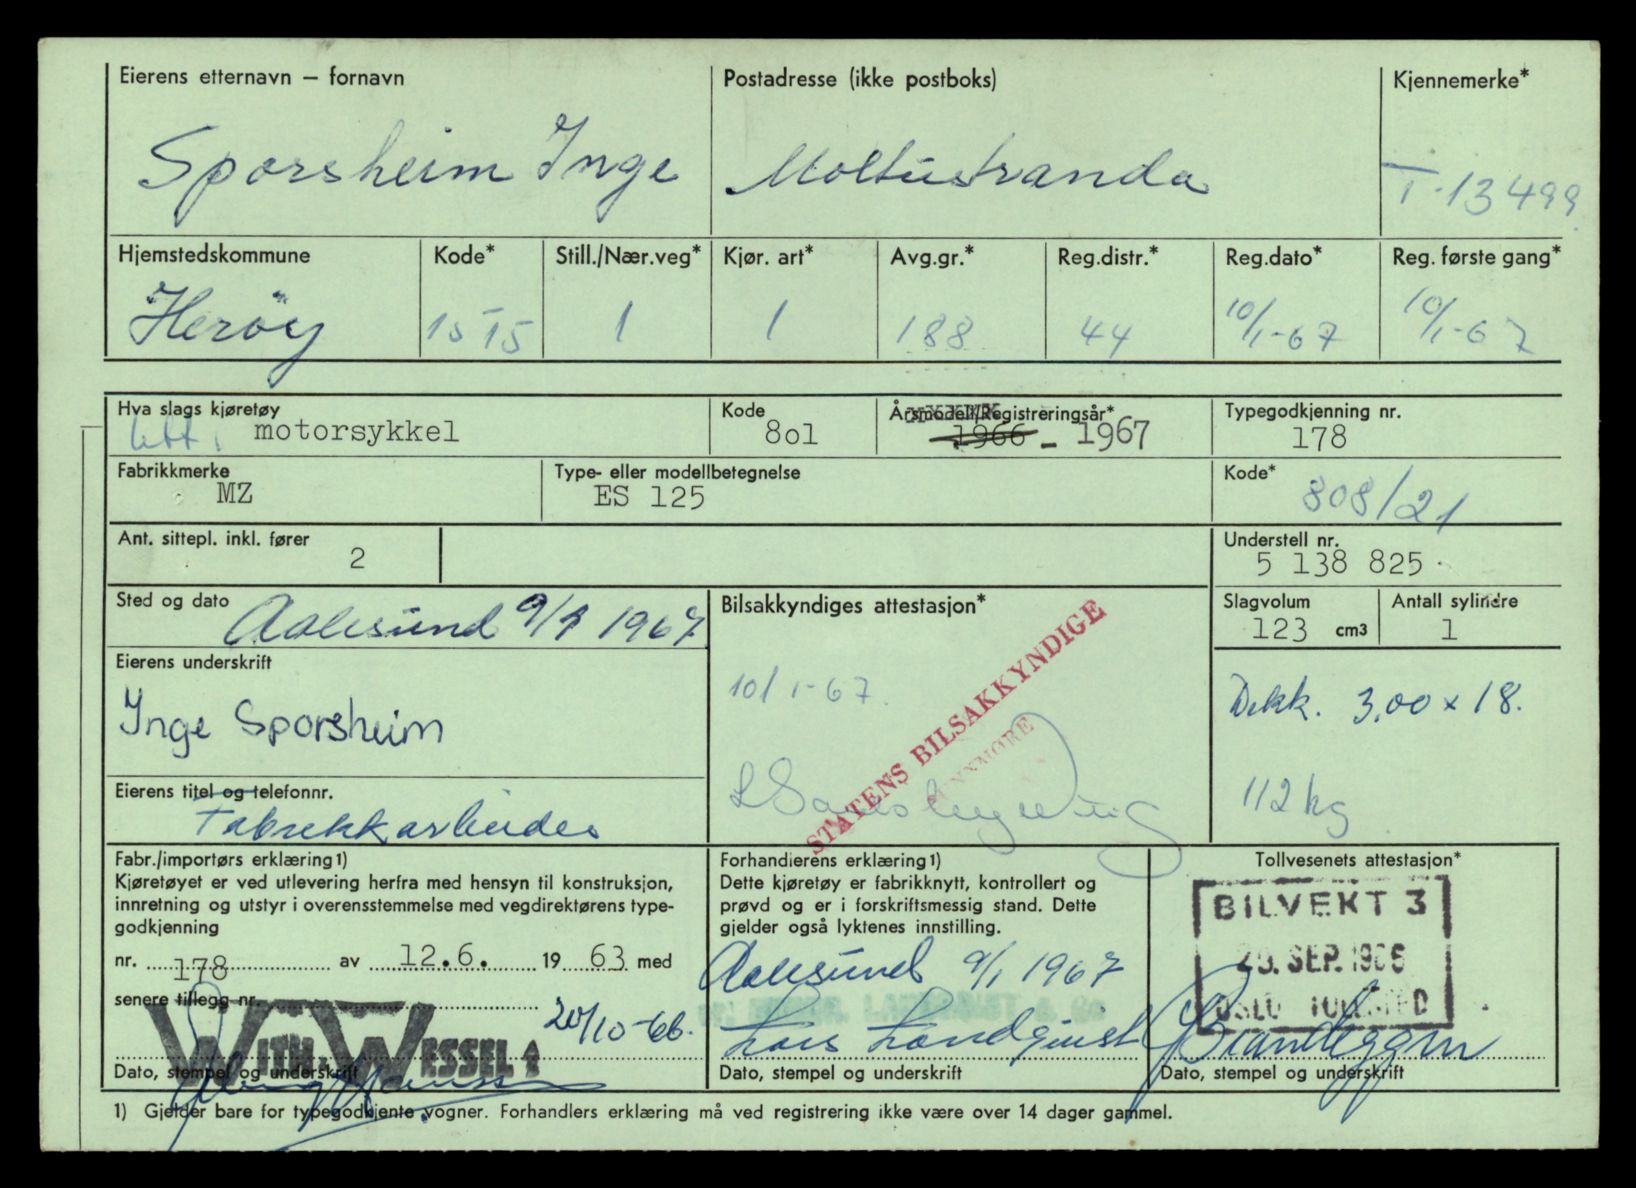 Eierens etternavn – fornavn Postadresse (ikke postboks) Kjennemerke*
Sporsheim Inge Moltustranda T-13499
Hjemstedskommune Kode* Still./Nær.veg* Kjør. art* Avg.gr.* Reg.distr.* Reg.dato* Reg. første gang*
Herøy 1515 1 1 188 44 10/1-67 10/1-67
Hva slags kjøretøy Kode Årsmodell/Registreringsår* Typegodkjenning nr.
lett. motorsykkel 8o1 1966 - 1967 178
Fabrikkmerke Type- eller modellbetegnelse Kode*
MZ ES 125 808/21
Ant. sittepl. inkl. fører Understell nr.
2 5 138 825
Sted og dato Bilsakkyndiges attestasjon* Slagvolum Antall sylindre
Aalesund 9/1 1967 123 cm3 1
Eierens underskrift
STATENS BILSAKKYNDIGE
10/1-67 Dekk. 3,00 x 18.
Inge Sporsheim
Eierens titel og telefonnr. 112 kg
Fabrikkarbeider
Fabr./importørs erklæring 1) Forhandlerens erklæring 1) Tollvesenets attestasjon*
Kjøretøyet er ved utlevering herfra med hensyn til konstruksjon, Dette kjøretøy er fabrikknytt, kontrollert og
innretning og utstyr i overensstemmelse med vegdirektørens type- prøvd og er i forskriftsmessig stand. Dette
godkjenning gjelder også lyktenes innstilling.
BILVEKT 3
nr. 178 av 12.6. 1963 med Aalesund 9/1 1967 SEP. 1966
senere tillegg nr. OSLO TOLLSTED
20/10-66. Lars Landquist
WITH & WESSEL
Dato, stempel og underskrift Dato, stempel og underskrift Dato, stempel og underskrift
1) Gjelder bare for typegodkjente vogner. Forhandlers erklæring må ved registrering ikke være over 14 dager gammel.